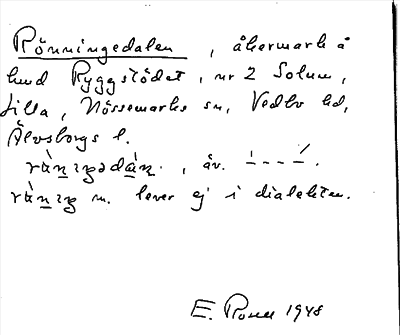 Rönningedalen, åkermark å
lund Ryggstödet, nr 2 Solum,
Lilla, Nössemarks sn, Vedbo hd,
Älvsborgs l.
rànıŋədàn., äv. ı̀---⁒.
rànıŋ m. lever ej i dialekten.
E. Rosell 1948